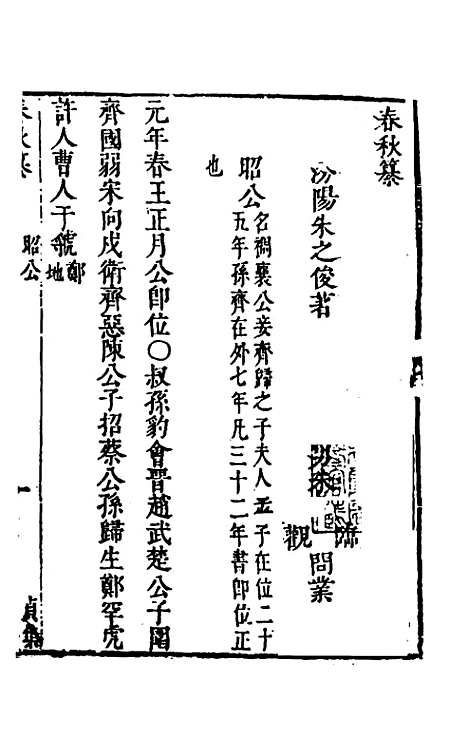 春秋纂
汾陽朱之俊著
觀
問業
昭公名裯襄公妾齊歸之子夫人孟子在位二十
五年孫齊在外七年凡三十二年書即位正
也
元年春王正月公即位○叔孫豹會晉趙武楚公子圍
齊國弱宋向戌衛齊惡陳公子招蔡公孫歸生鄭罕虎
許人曹人于虢鄭地
春秋纂
昭公
一
貞集